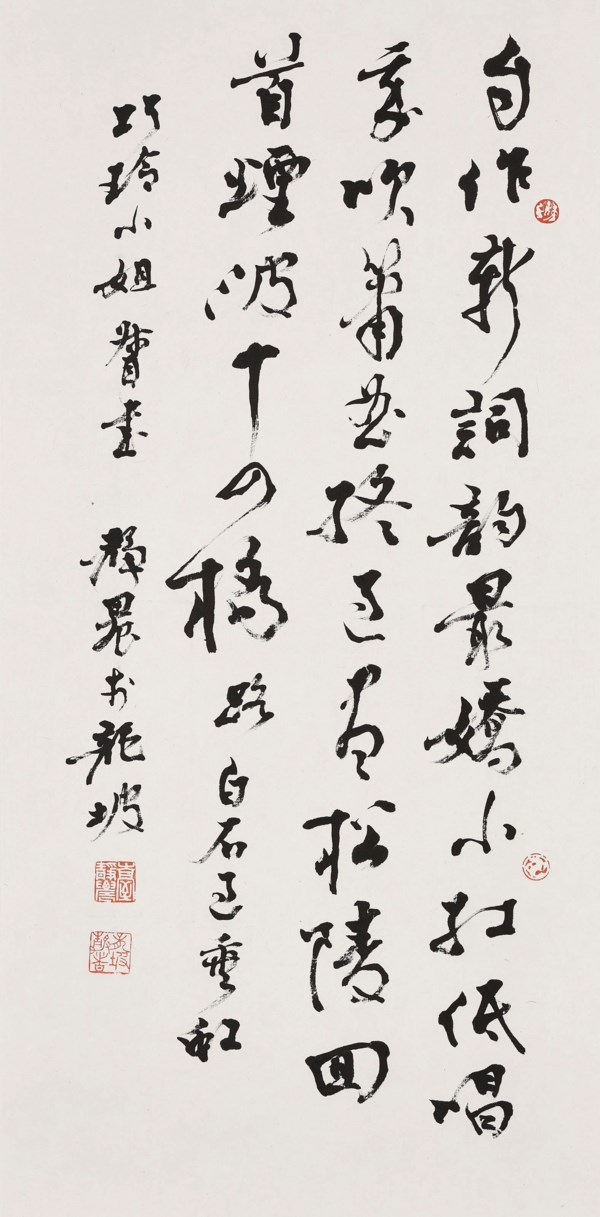 自作新詞韵最嬌小紅低唱
我吹簫曲終過盡松陵回
首煙波十四橋 路 白石過垂虹
巧玲小姐督書 靜農於龍坡
臺靜農